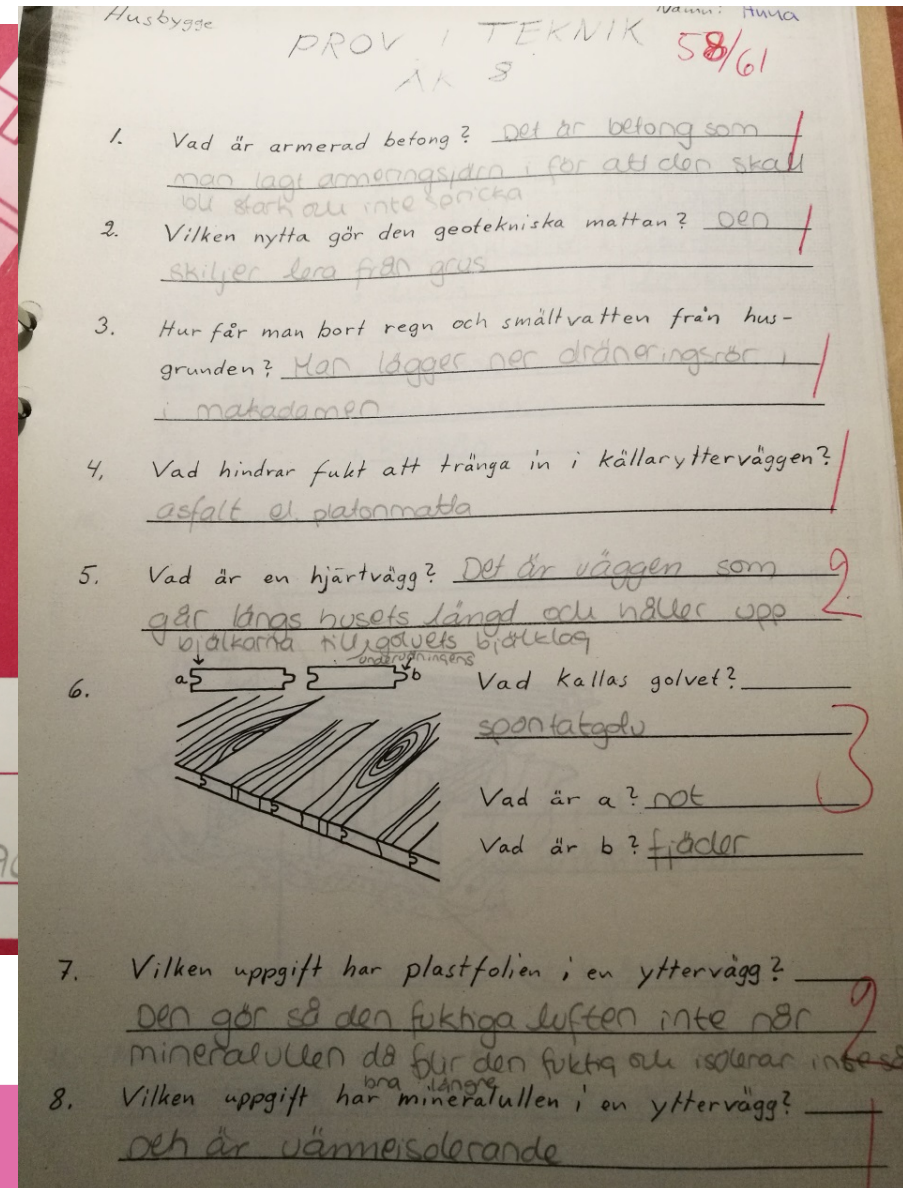 Husbygge
Namn: Anna
PROV I TEKNIK
ÅK 8
58/61
1. Vad är armerad betong? Det är betong som
man lagt armeringsjärn i för att den skall
bli stark och inte spricka
1
2. Vilken nytta gör den geotekniska mattan? Den
skiljer lera från grus
1
3. Hur får man bort regn och smältvatten från hus-
grunden? Man lägger ner dräneringsrör i
i makadamen
1
4, Vad hindrar fukt att tränga in i källarytterväggen?
asfalt el. platonmatta
1
5. Vad är en hjärtvägg? Det är väggen som
går längs husets längd och håller upp
bjälkarna till golvets bjälklag
undervåningens
2
6. a b Vad kallas golvet?
spontatgolv
Vad är a? not
Vad är b? fjäder
3
7. Vilken uppgift har plastfolien i en yttervägg?
Den gör så den fuktiga luften inte når
mineralullen då blir den fuktig och isolerar inte så
bra längre
2
8. Vilken uppgift har mineralullen i en yttervägg?
Den är värmeisolerande
1